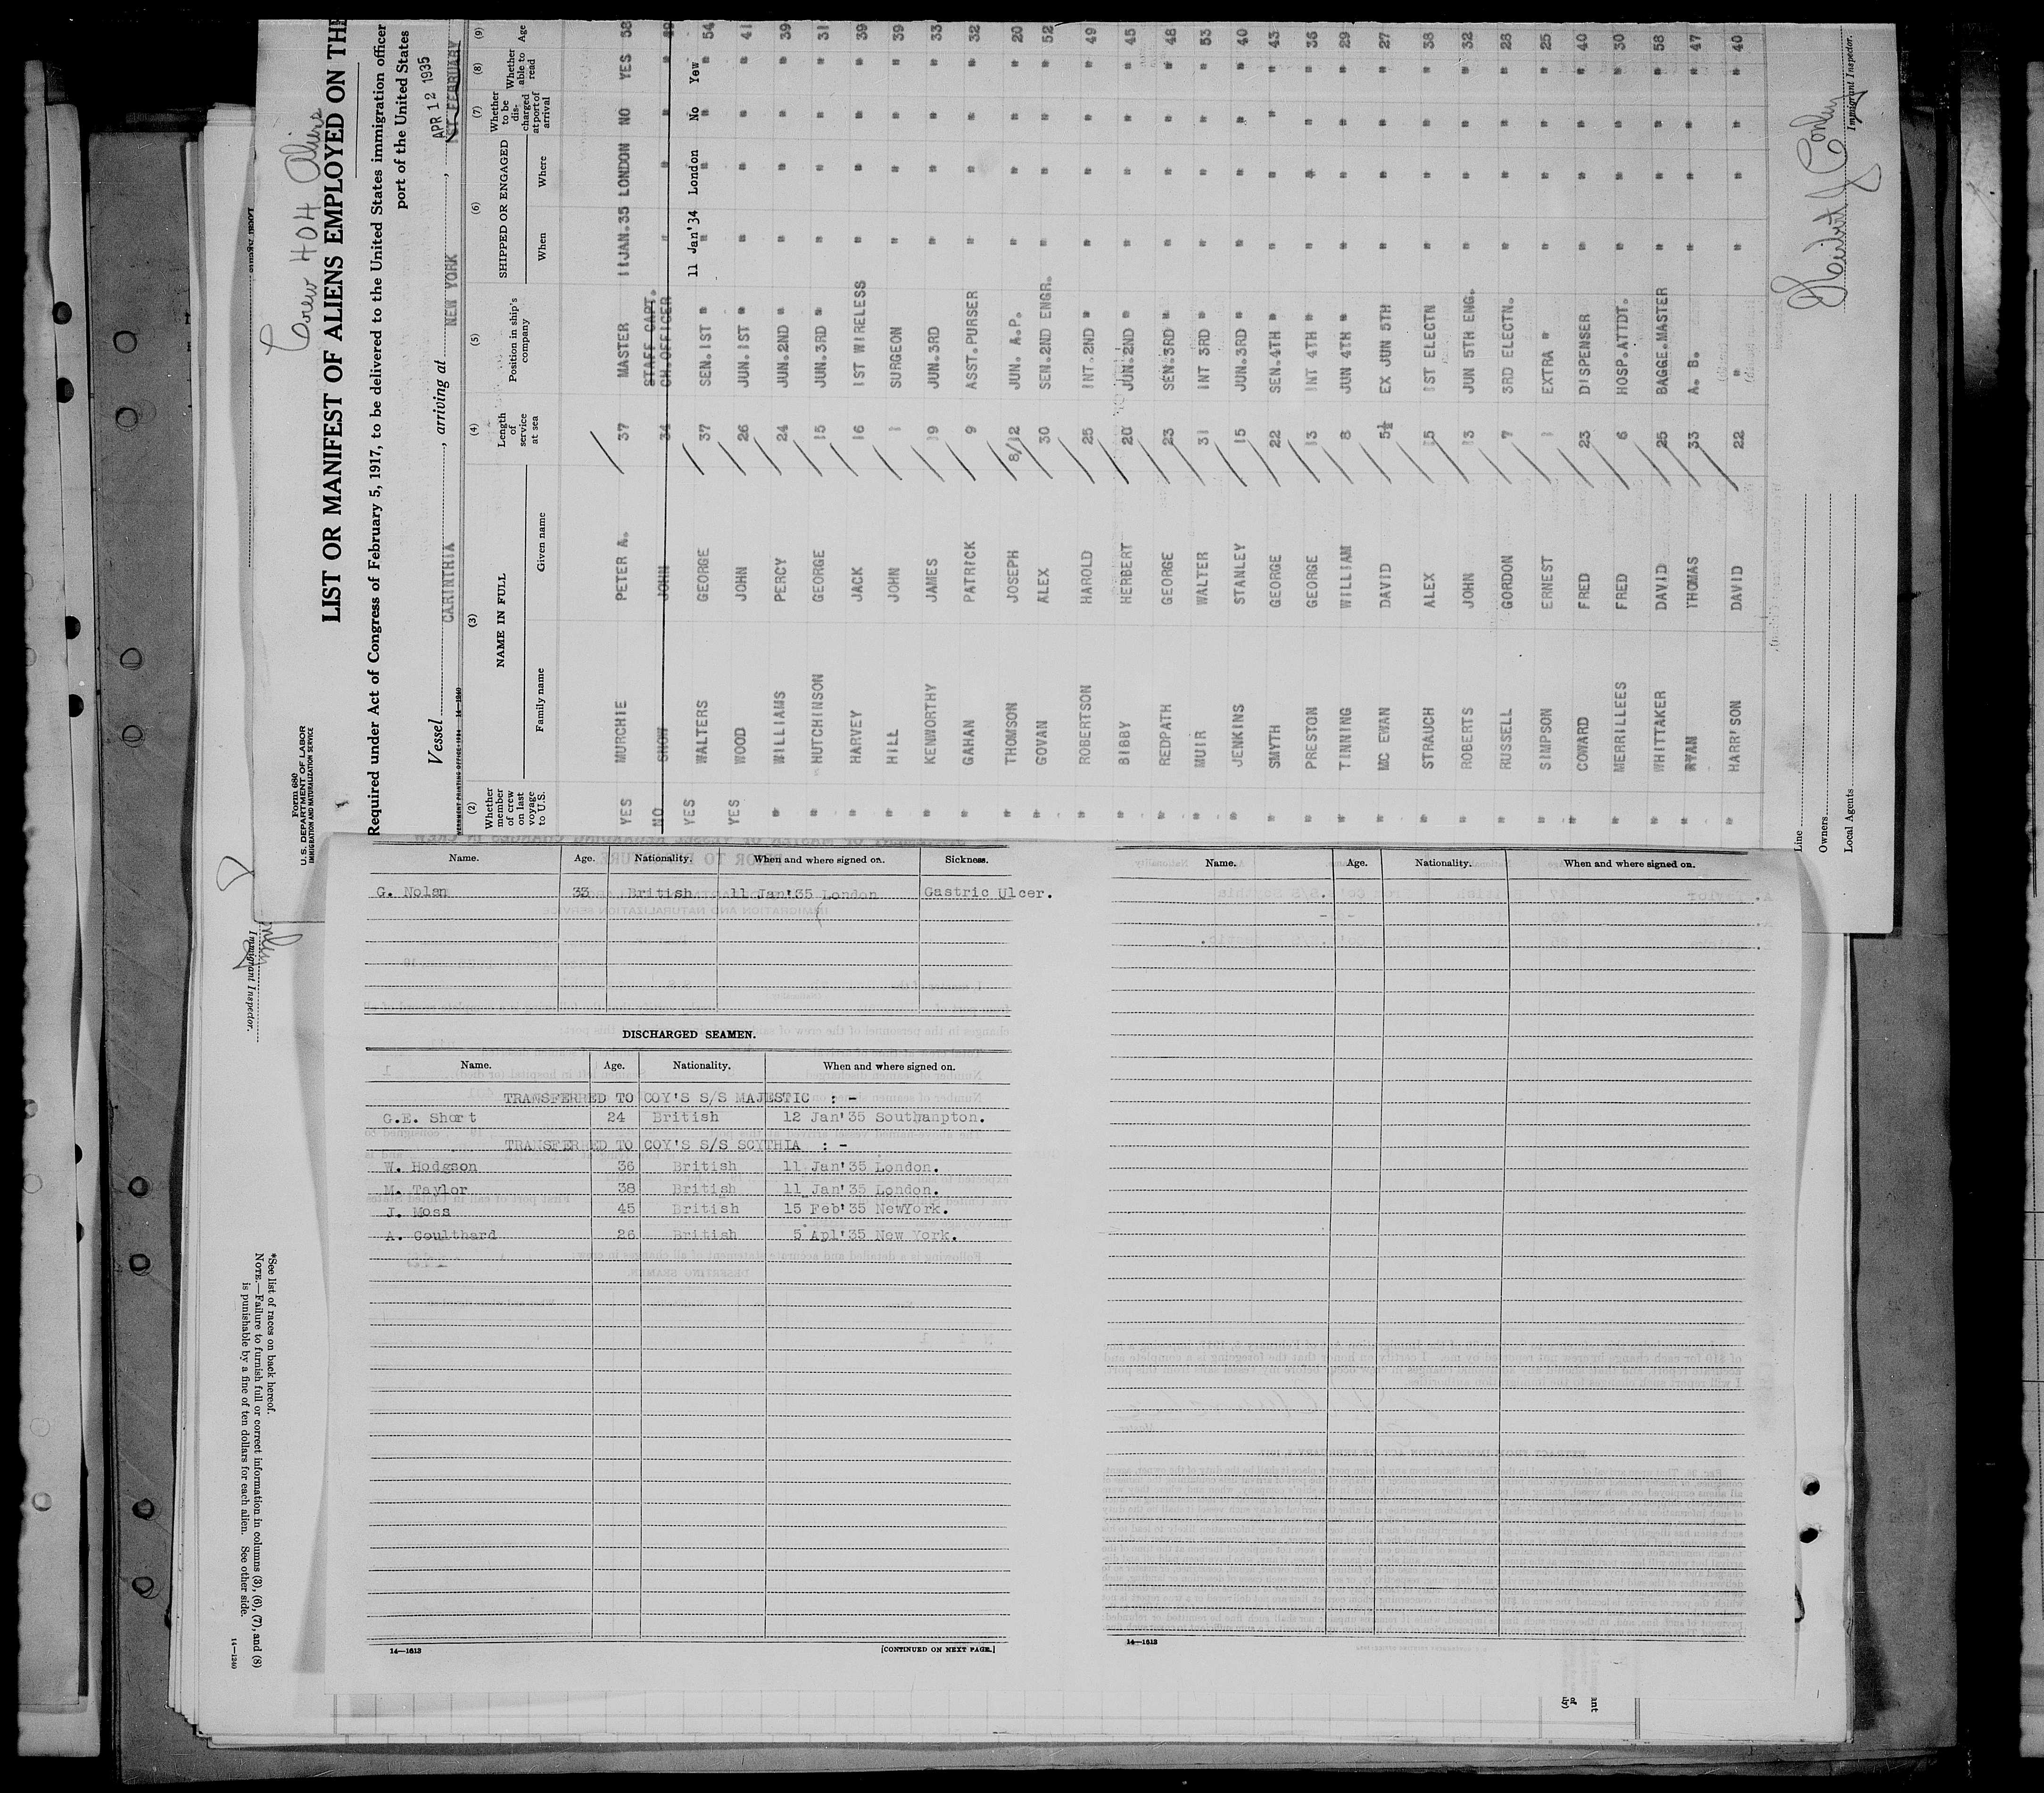 Crew 404 Aliens
Form 680
U. S. DEPARTMENT OF LABOR
IMMIGRATION AND NATURALIZATION SERVICE
LIST OR MANIFEST OF ALIENS EMPLOYED ON THE
Required under Act of Congress of February 5, 1917, to be delivered to the United States immigration officer
port of the United States
Vessel CARINTHIA, arriving at NEW YORK, APR 12 1935
1ST FEBRUARY
(2) (3) (4) (5) (6) (7) (8) (9)
Whether member of crew on last voyage to U.S. NAME IN FULL Length of service at sea Position in ship's company SHIPPED OR ENGAGED Whether to be discharged at port of arrival Whether able to read Age
Family name Given name When Where
YES MURCHIE PETER A. 37 MASTER 11JAN.35 LONDON NO YES 58
STAFF CAPT.
NO SNOW JOHN 34 CH.OFFICER " " " " 49
11 Jan'34 London No Yew
YES WALTERS GEORGE 37 SEN.1ST " " " " " 54
YES WOOD JOHN 26 JUN.1ST " " " " " 41
" WILLIAMS PERCY 24 JUN.2ND " " " " " 39
" HUTCHINSON GEORGE 15 JUN.3RD " " " " " 31
" HARVEY JACK 16 1ST WIRELESS " " " " 39
" HILL JOHN 1 SURGEON " " " " 39
" KENWORTHY JAMES 19 JUN.3RD " " " " 33
" GAHAN PATRICK 9 ASST.PURSER " " " " 32
" THOMSON JOSEPH 8/12 JUN. A.P. " " " " 20
" GOVAN ALEX 30 SEN.2ND ENGR. " " " " 52
" ROBERTSON HAROLD 25 INT.2ND " " " " " 49
" BIBBY HERBERT 20 JUN.2ND " " " " " 45
" REDPATH GEORGE 23 SEN.3RD " " " " " 48
" MUIR WALTER 31 INT 3RD " " " " " 53
" JENKINS STANLEY 15 JUN.3RD " " " " " 40
" SMYTH GEORGE 22 SEN.4TH " " " " " 43
" PRESTON GEORGE 13 INT 4TH " " " " " 36
" TINNING WILLIAM 8 JUN 4TH " " " " " 29
" MC EWAN DAVID 5½ EX JUN 5TH " " " " 27
" STRAUCH ALEX 15 1ST ELECTN " " " " 38
" ROBERTS JOHN 13 JUN 5TH ENG. " " " " 32
" RUSSELL GORDON 7 3RD ELECTN. " " " " 28
" SIMPSON ERNEST 1 EXTRA " " " " " 25
" COWARD FRED 23 DISPENSER " " " " 40
" MERRILLEES FRED 6 HOSP.ATTDT. " " " " 30
" WHITTAKER DAVID 25 BAGGE.MASTER " " " " 58
" RYAN THOMAS 33 A. B. " " " " 47
" HARRISON DAVID 22 " " " " " 40
Line
Owners
Local Agents
Immigrant Inspector.
Name. Age. Nationality. When and where signed on. Sickness.
G. Nolan 33 British 11 Jan'35 London Gastric Ulcer.
DISCHARGED SEAMEN.
Name. Age. Nationality. When and where signed on.
TRANSFERRED TO COY'S S/S MAJESTIC : -
G.E. Short 24 British 12 Jan'35 Southanpton.
TRANSFERRED TO COY'S S/S SCYTHIA : -
W. Hodgson 36 British 11 Jan'35 London.
M. Taylor 38 British 11 Jan'35 London.
J. Moss 45 British 15 Feb'35 NewYork.
A. Coulthard 26 British 5 Apl'35 New York.
14—1613 [CONTINUED ON NEXT PAGE.]
Name. Age. Nationality. When and where signed on.
14—1613
Immigrant Inspector.
*See list of races on back hereof.
NOTE.—Failure to furnish full or correct information in columns (3), (6), (7), and (8)
is punishable by a fine of ten dollars for each alien. See other side.
14—1240